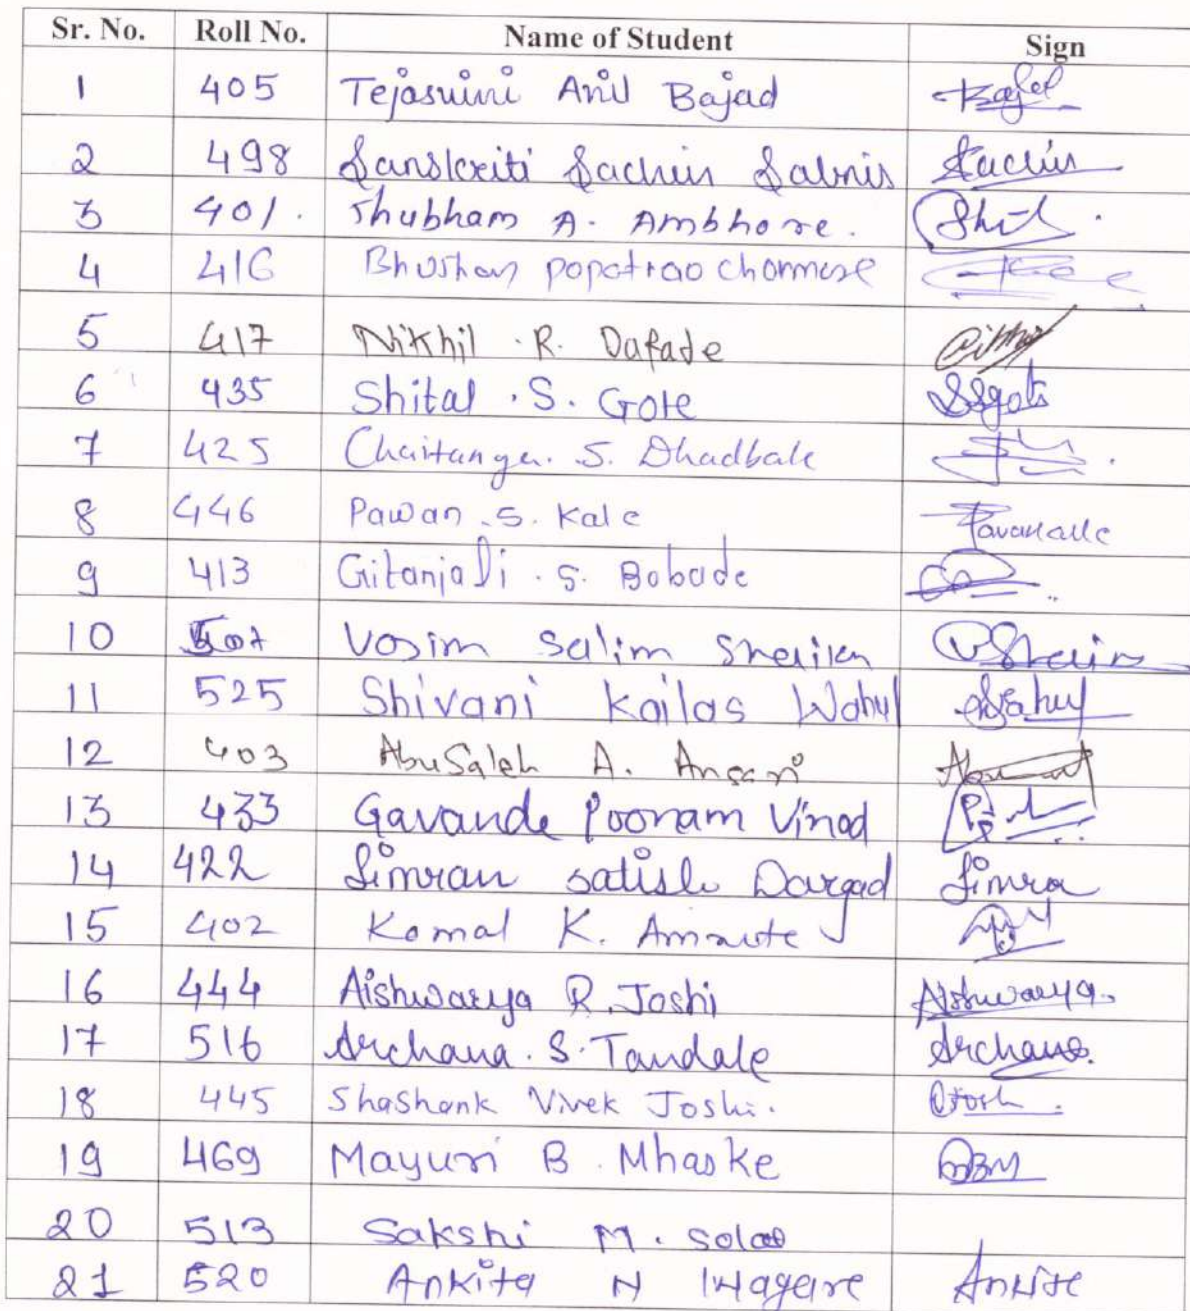 Sr. No. Roll No. Name of Student Sign
1 405 Tejaswini Anil Bajad
2 498 Sanskriti Sachin Sabnis Sachin
3 401. Shubham A. Ambhore.
4 416 Bhushan popatrao
5 417 Nikhil . R. Dafade
6 435 Shital . S. Gote SSgote
7 425 Chaitanya. S. Dhadbale
8 446 Pawan .S. Kale Pavankale
9 413 Gitanjali . S. Bobade
10 507 Vosim Salim Sheikh
11 525 Shivani Kailas Wahul Wahul
12 403 AbuSaleh A. Ansari
13 433 Gavande Poonam Vinod
14 422 Simran satish Dargad Simra
15 402 Komal K. Amrute
16 444 Aishwarya R. Joshi Aishwarya.
17 516 Archana . S. Tandale Archana.
18 445 Shashank Vivek Joshi.
19 469 Mayuri B . Mhaske MBM
20 513 Sakshi M . Solao
21 520 Ankita N Wagare Ankita